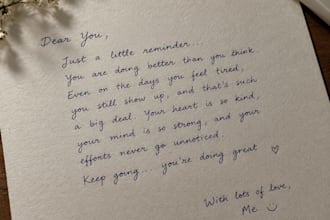 Dear You,
Just a little reminder...
You are doing better than you think.
Even on the days you feel tired,
you still show up, and that's such
a big deal. Your heart is so kind,
your mind is so strong, and your
efforts never go unnoticed.
Keep going... you're doing great ♡
With lots of love,
Me. ☺